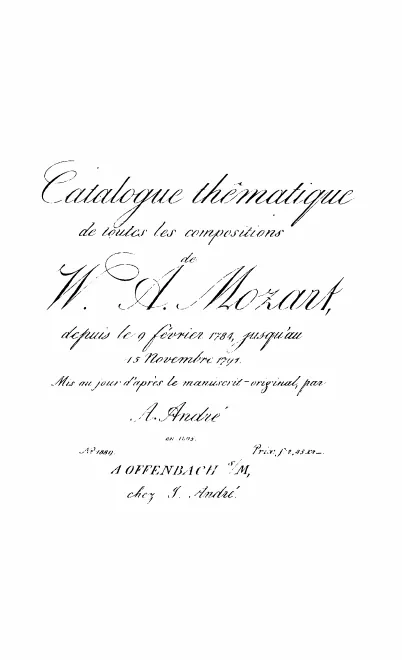 Catalogue thématique
de toutes les compositions
de
W. A. Mozart,
depuis le 9 février 1784, jusqu'au
15 Novembre 1791.
Mis au jour d'après le manuscrit-original, par
A. André
No. 1889. Prix, f
A OFFENBACH s/M,
chez J. André.